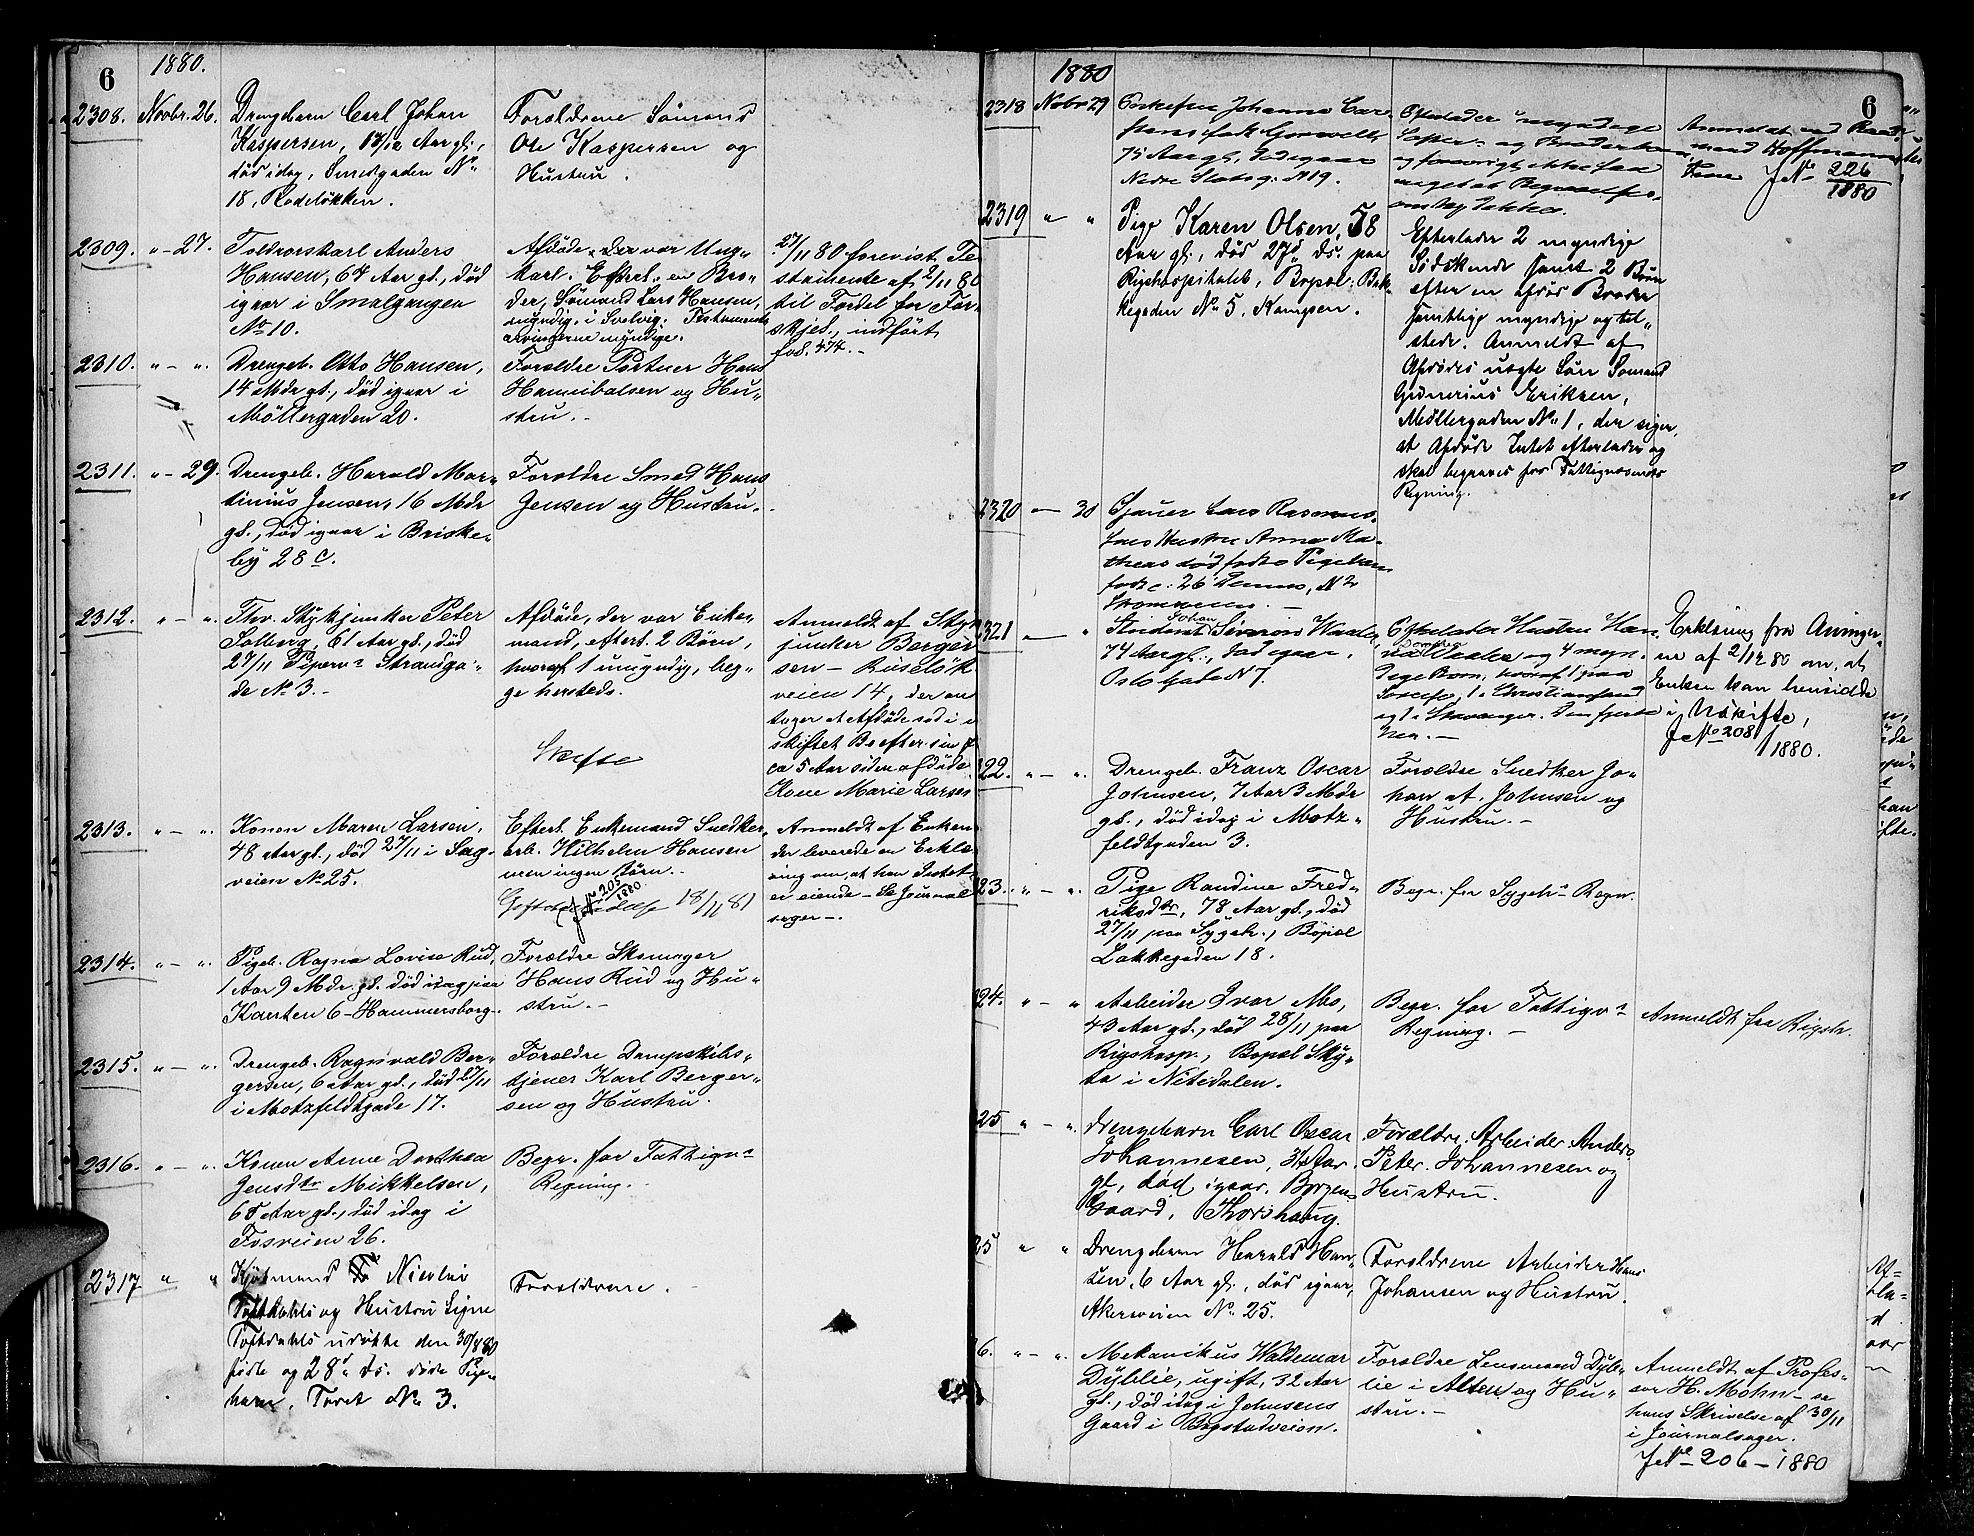 6
1880.
2308. Novbr. 26.
Drengebarn Carl Johan
Kaspersen, Aar gl.,
død idag, Smedgaden No
18, Rodeløkken.
Forældrene Sömand
Ole Kaspersen og
Hustru.
2309. " - 27.
Anders
Hansen, 67 Aar gl., död
igaar i Smalgangen
No 10.
Afdöde, der var Ung-
karl. Efterl. en Bro-
der, Sömand Lars Hansen,
myndig, i Svelvig. Testaments
arvingerne myndige.
27/11 80 forevist Te
stamente af 2/11 80
til Fordel for For-
skjell., indfört
fol. 474. -
2310. " - ".
Drengeb. Otto Hansen,
14 Mdr gl., död igaar i
Möllergaden 20.
Forældre Portner Hans
Hannibalsen og Hu-
stru. -
2311. " - 29.
Drengeb. Harald Mar-
tinius Jensen, 16 Mdr
gl., död igaar i Briske-
by 28 c.
Forældre Smed Hans
Jensen og Hustru. -
2312. " - ".
Thv. Stykjunker Peter
Solberg, 61 Aar gl., död
27/11 Piperv. Strandga-
de No 3. -
Afdöde, der var Enke-
mand, efterl. 2 Börn,
hvoraf 1 umyndig, beg-
ge hersteds.
Skifte
Anmeldt af Styk
junker Berger
sen - Ruselök
veien 14, der an
tager at Afdöde sad i u
skiftet Bo efter sin f
ca 5 Aar siden afdöde
Kone Marie Larsen
2313. " - ".
Konen Maren Larsen,
48 Aar gl., död 27/11 i Sag-
veien No 25.
Efterl. Enkemand Snedker
arb. Wilhelm Hansen
men ingen Börn. -
J No 205/1880
18/11 81
Anmeldt af Enkem.
der leverede en Erklæ
ring om, at han Intet
er eiende - Se Journal
sager -.
2314. " - ".
Pigeb. Ragna Lovise Rud,
1 Aar 9 Mdr. gl. död idag paa
Kanten 6 - Hammersborg -
Forældre Skomager
Hans Rud og Hu-
stru. -
2315. " - ".
Drengeb. Ragnvald Ber-
gersen, 6 Aar gl., död 27/11
i Motzfeldtgade 17.
Forældre Dampskibs-
tjener Karl Berger-
sen og Hustru.
2316. " - ".
Konen Anne Dorthea
Jensdtr Mikkelsen,
68 Aar gl., död idag i
Fosveien 26.
Begr. for Fattigvs
Regning. -
2317 " "
Kjöbmand Nicolai
Toftdahls og Hustru Signe
Toftdahls udöbte den 30/8 80
fødte og 28de ds. døde Pige-
barn, Torvet No 3.
Forældrene.
1880
6
2318 Novbr 29
Johanne
75 Aar gl., død igaar
Nedre Slotsg. N 19.
Efterlader myndige
Søster- og Broderbørn
og forøvrigt ikke saa
meget at Begravelses-
omk.
Anmeldt ved
mand Hoffmanns
J No 226/1880
2319 " "
Pige Karen Olsen, 58
Aar gl., død 27de ds. paa
Rigshospitalet, Bopæl: Bak-
kegaden No 5, Kampen.
Efterlader 2 myndige
Sødskende samt 2 Børn
efter en afdød Broder
samtlige myndige og til-
stede. Anmeldt af
Afdødes uægte Søn Sømand
Gunerius Eriksen,
Møllergaden No 1, der siger,
at Afdøde Intet efterlader og
skal begraves for Fattigvæsenets
Regning.
2320 - 30
Sjauer Lars Rasmus-
sens Hustru Anne Ma-
theas død fødte Pigebarn
født: 26 Dennes, No 2
-
2321 - "
Student Johan Simron Waaler,
74 Aar gl., død igaar.
Oslo Gade N 7.
Efterlader Hustru Han
na Waaler og 4 myn-
dige Børn, hvoraf 1 paa
1 i Christianssand
og 1 i Stavanger. Den fjerde
her. -
Erklæring fra Arvinger-
ne af 2/12 80 om, at
Enken kan hensidde
i Uskifte,
J No 208/1880.
22. " - ".
Drengeb. Franz Oscar
Johnsen, 7 Aar 3 Mdr
gl., död idag i Motz-
feldtgaden 3.
Forældre Snedker Jo-
han At. Johnsen og
Hustru. -
23. " - ".
Pige Randine Fred-
riksdtr, 78 Aar gl., död
27/11 paa Sygeh., Bopæl
Lakkegaden 18.
Begr. for Sygehs Regn.
24. " - "
Arbeider Ivar Mo,
43 Aar gl., död 28/11 paa
Rigshosp., Bopæl Sky-
ta i Nitedalen.
Begr. for Fattigvs
Regning. -
Anmeldt fra Rigsh.
25 " - ".
Drengebarn Carl Oscar
Johannesen, 3½ Aar
gl., død igaar, Borgen-
Gaard, Thorshaug.
Forældre. Arbeider Anders
Peter Johannesen og
Hustru.
25 " "
Drengebarn Harald Han-
sen, 6 Aar gl., død igaar,
Akersveien No 25.
Forældrene Arbeider Hans
Johansen og Hustru.
26. " - ".
Mekanikus Waldemar
Dyblie, ugift, 32 Aar
gl., död idag i Johnsens
Gaard i Bogstadveien.
Forældre Lensmand Dyb-
lie i Alten og Hu-
stru. -
Anmeldt af Profes-
sor H. Mohn - se
hans Skrivelse af 30/11
i Journalsager.
J No 206 - 1880